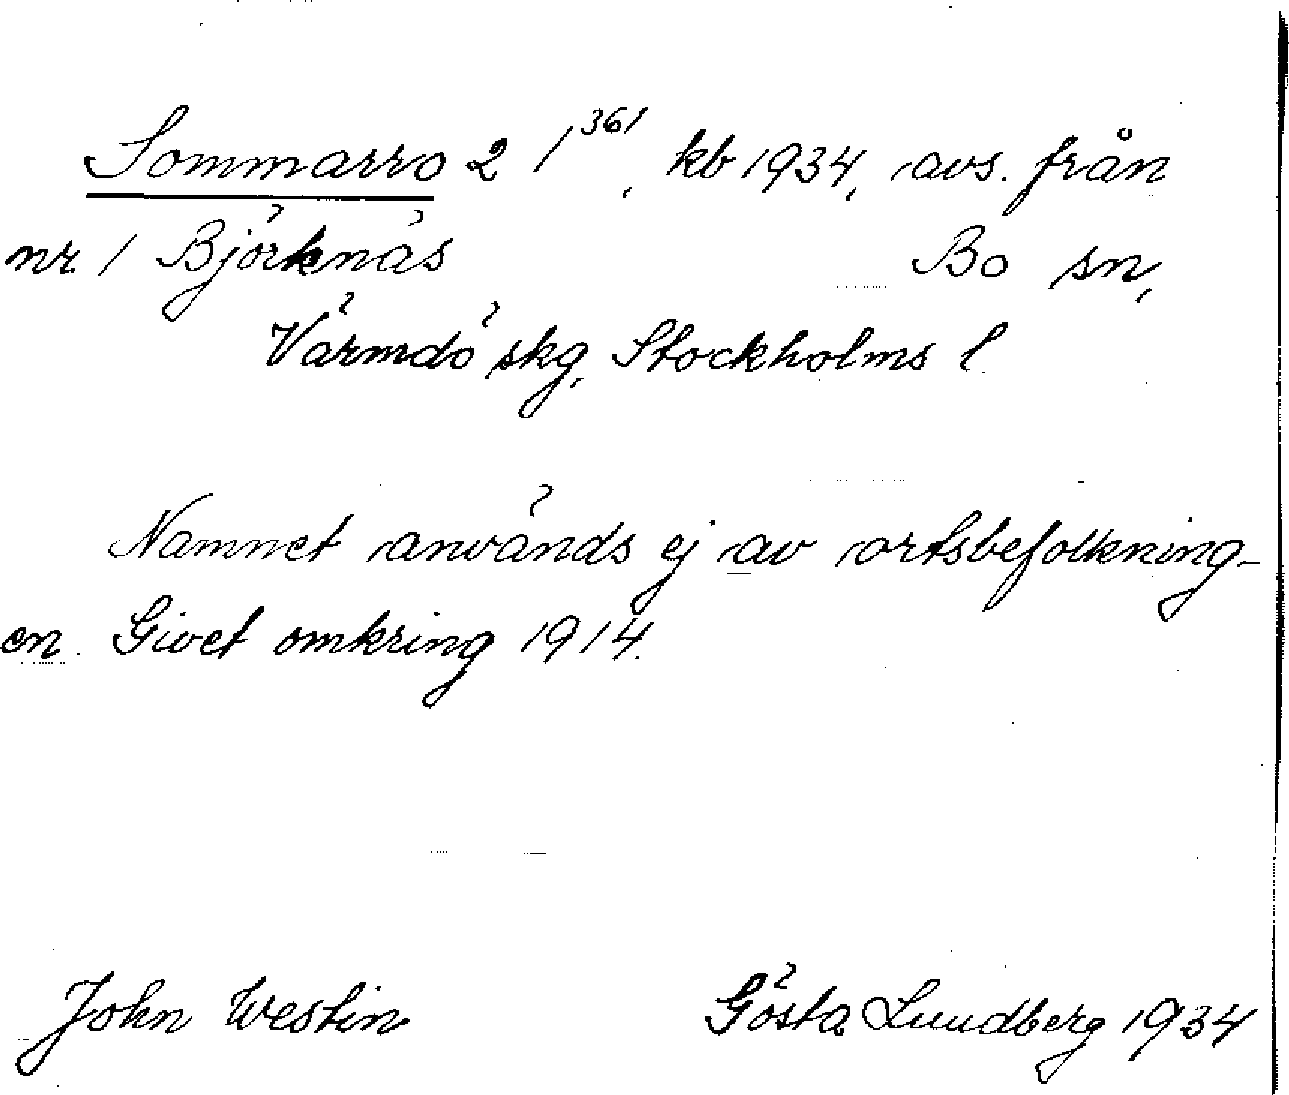 Sommarro 2 1³⁶¹, kb 1934, avs. från
nr 1 Björknäs Bo sn,
Värmdö skg, Stockholms l.
Namnet användes ej av ortsbefolkning-
en. Givet omkring 1914.
John Westin Gösta Lundberg 1934